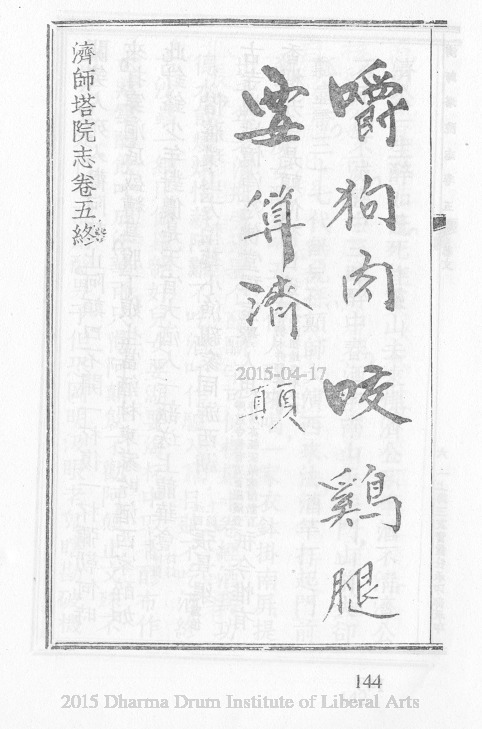 嚼狗肉咬鷄腿
要算濟顛
濟師塔院志卷五終
2015-04-17
144
2015 Dharma Drum Institute of Liberal Arts